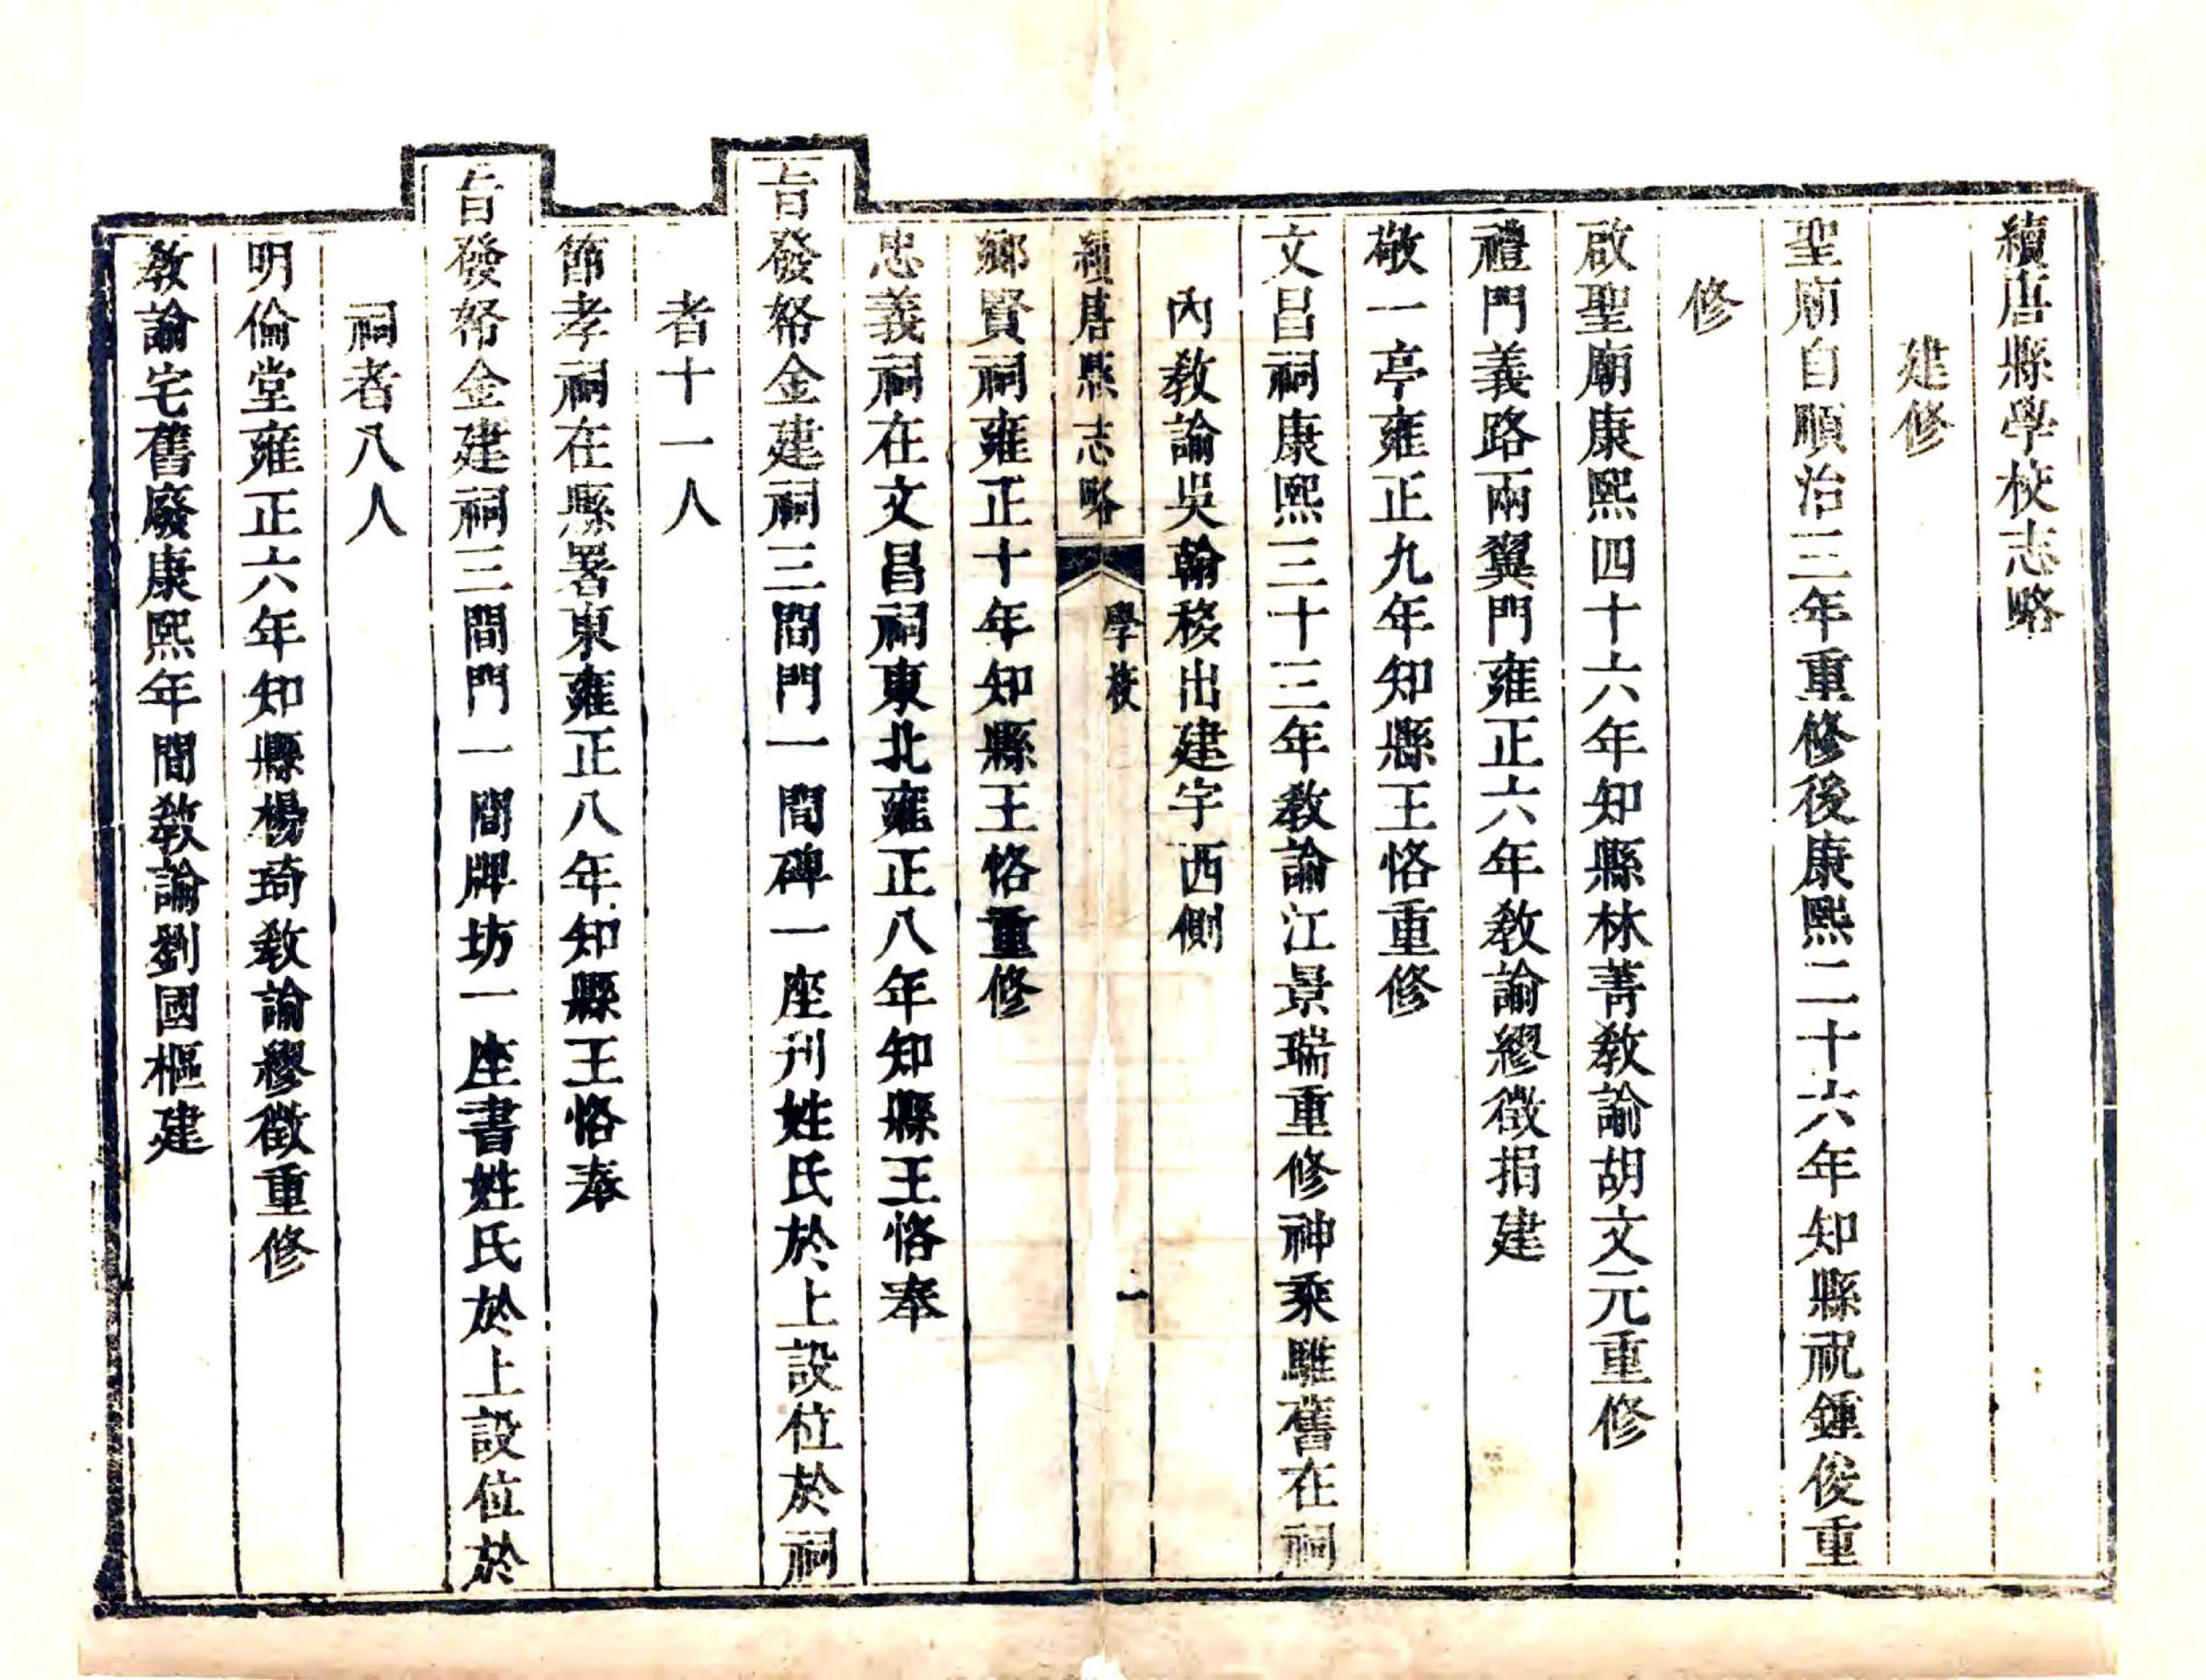 續唐縣學校志略
建修
聖廟自順治三年重修後康熙二十六年知縣祝鍾俊重
修
啟聖廟康熙四十六年知縣林菁教諭胡文元重修
禮門義路兩翼門雍正六年教諭繆徵捐建
敬一亭雍正九年知縣王恪重修
文昌祠康熙三十三年教諭江景瑞重修神乘騅舊在祠
內教諭吳翰移出建宇西側
續唐縣志略 學校 一
鄉賢祠雍正十年知縣王恪重修
忠義祠在文昌祠東北雍正八年知縣王恪奉
旨發帑金建祠三間門一間碑一座刋姓氏於上設位於祠
者十一人
節孝祠在縣署東雍正八年知縣王恪奉
旨發帑金建祠三間門一間牌坊一座書姓氏於上設位於
祠者八人
明倫堂雍正六年知縣楊琦教諭繆徵重修
教諭宅舊廢康熙年間教諭劉國樞建